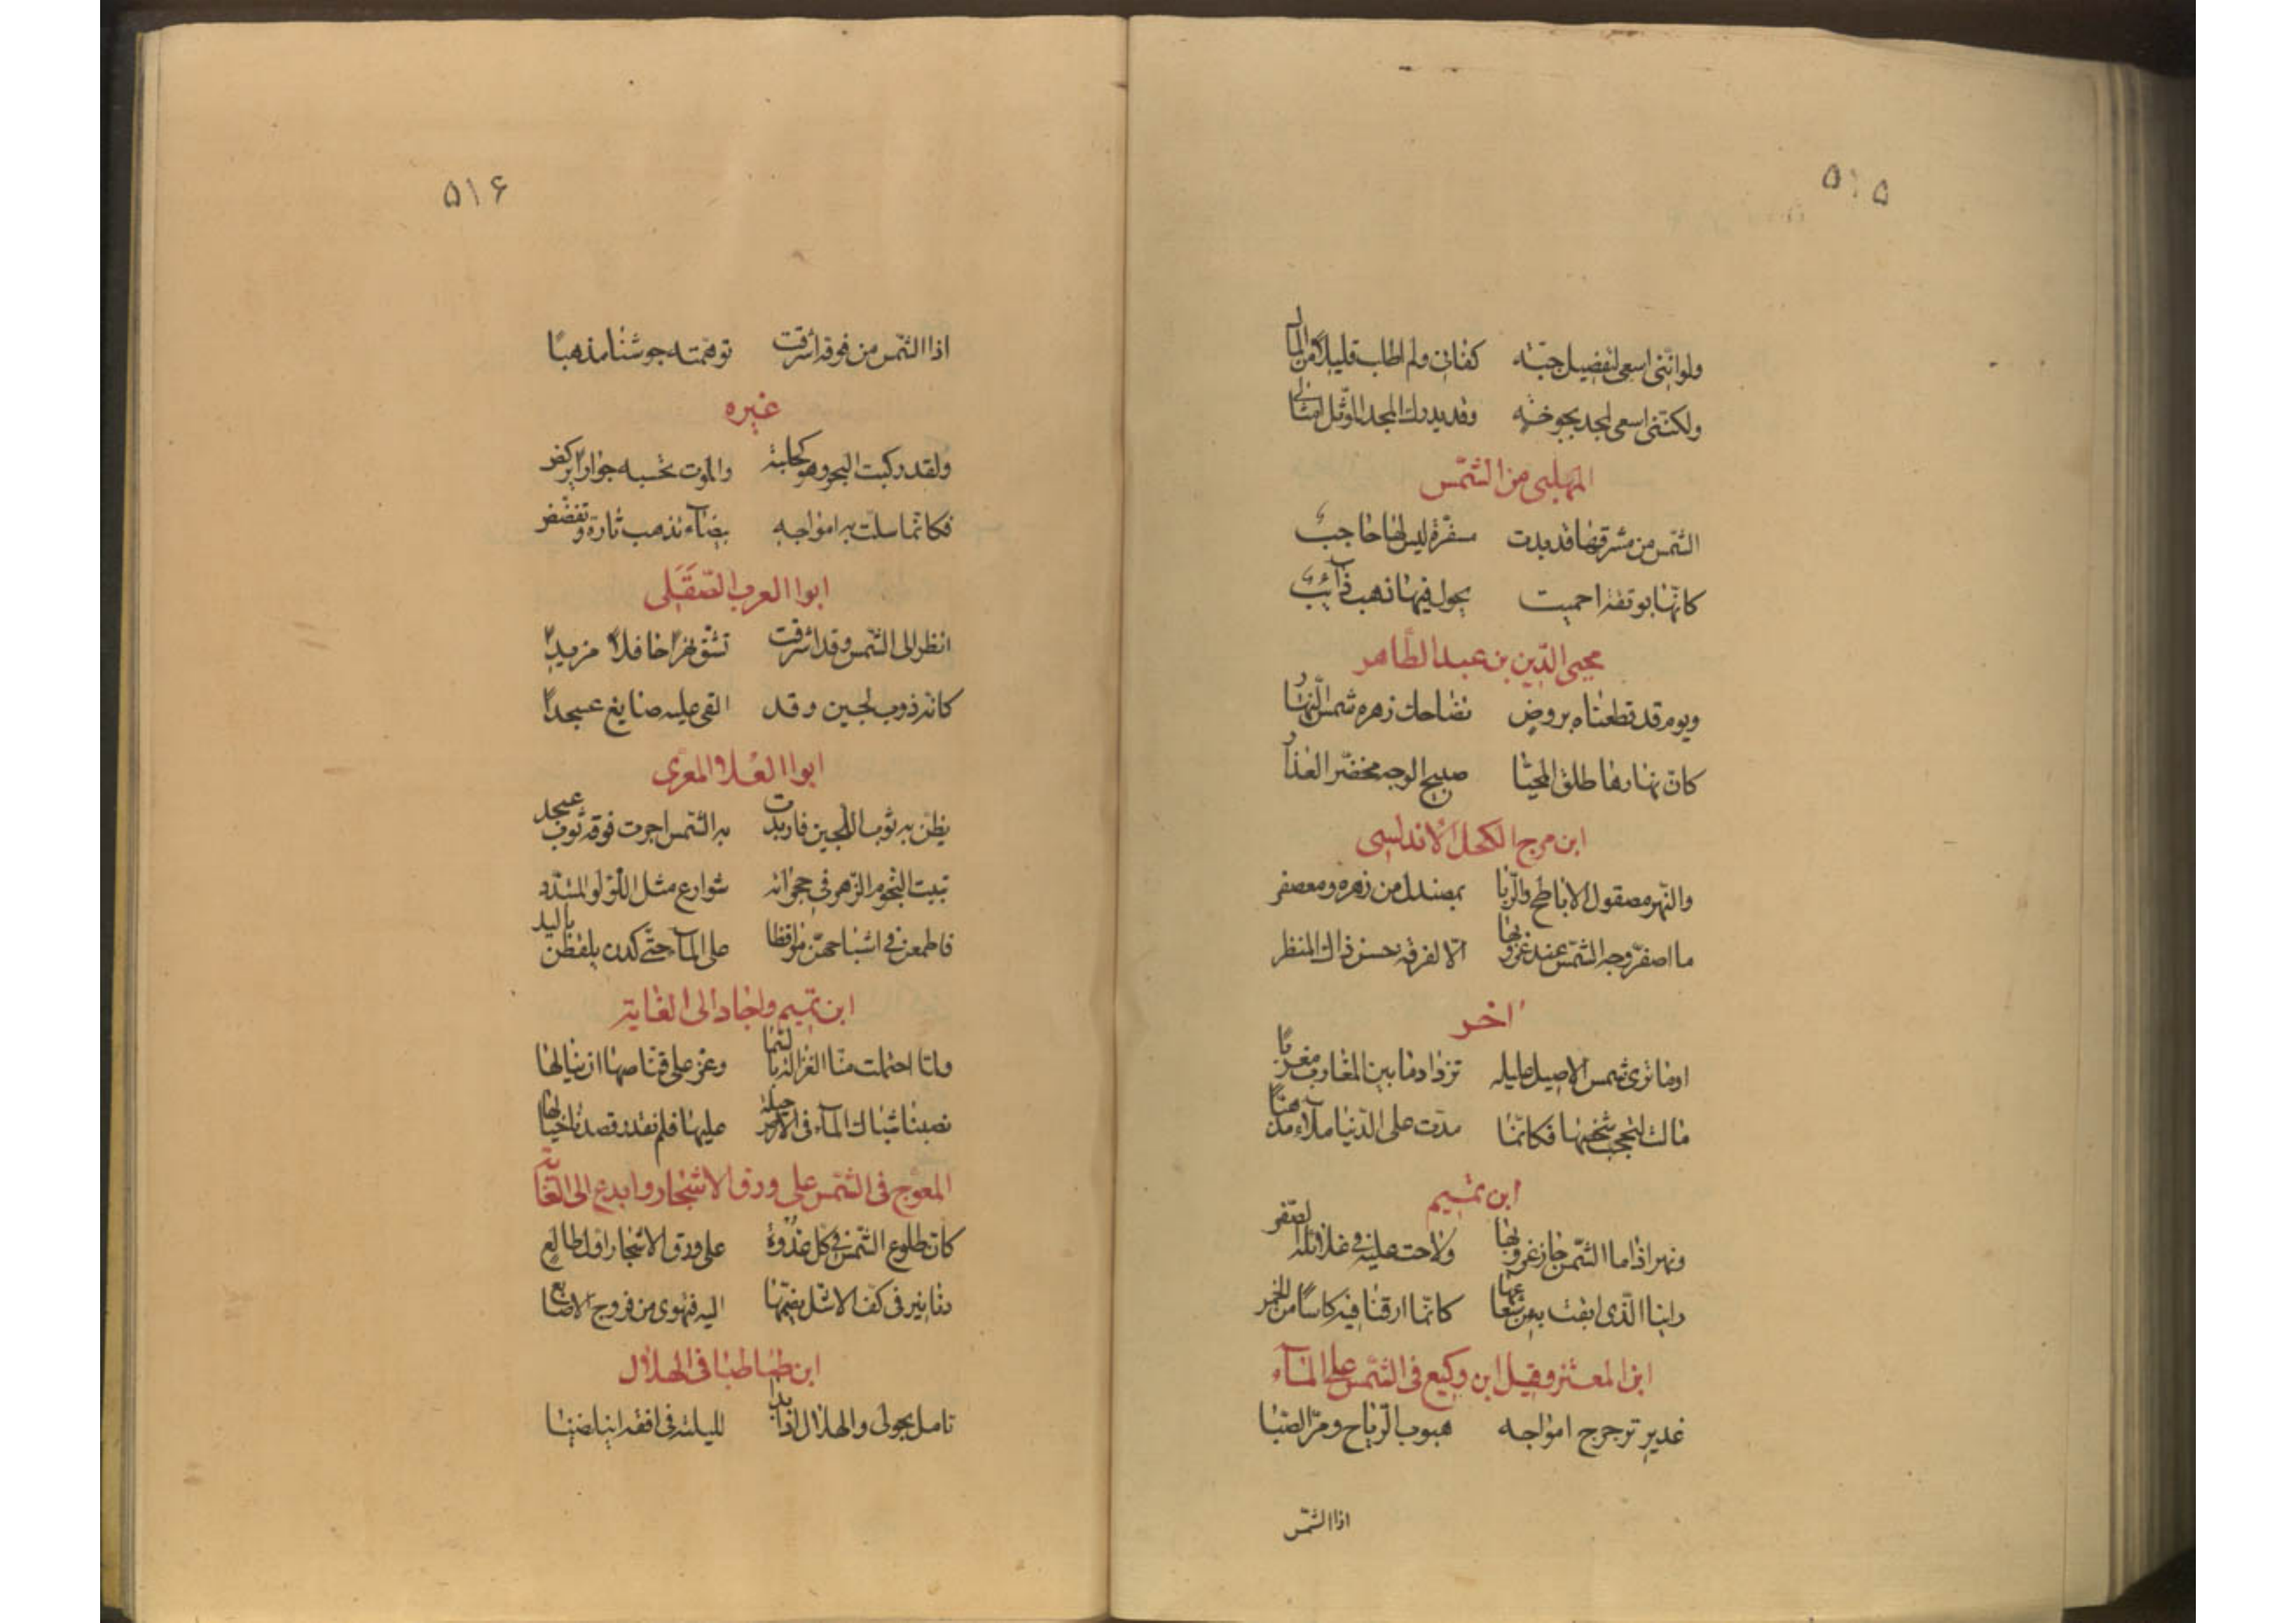 ۵۱۵
ولو انّنی اسعی لتفضیل جبّته کفانی ولم اطلب قلیلاً من المال
ولکنّنی اسعی لمجد بجوخة وقد یدرك المجد الماوثّل امثالی
المهلبی من الشمس
الشّمس من مشرقها قد بدت مسفرة لیس لها حاجب
کانّها بوتقة احمیت یجول فیها ذهب ذآئب
محیی الدّین بن عبد الظاهر
ویوم قد قطعناه بروض تضاحك زهره شمس النّهار
کانّ نهارها طلق المحیّا صبیح الوجه مخضرّ العذار
ابن مرج الکحل الاندلسی
والنّهر مصقول الاباطح والرّبا بمصندل من زهره ومعصفر
ما اصفرّ وجه الشّمس عند غروبها الّا لفرقة حسن ذاك المنظر
اخر
اوما تری شمس الاصیل علیله تزداد ما بین المغارب مغربًا
مالت لتحجب شخصها فکانّما مدّت علی الدّنیا ملآء مذهبًا
ابن تمیم
ونهر اذا ما الشّمس حان غروبها ولاحت علیه فی غلائله الصّفر
راینا الّذی ابقت به من شعاعها کانّا ارقنا فیه کاسًا من الخمر
ابن المعتز وقیل ابن وکیع فی الشّمس علی المآء
غدیر ترجرج امواجه هبوب الرّیاح ومرّ الصّبا
اذا الشّمس
۵۱۶
اذا الشّمس من فوقه اشرقت توهّمته جوشنا مذهبًا
غیره
ولقد رکبت البحر وهو کحلبة والموت تحسبه جوارا یرکض
فکانّما سلّت به امواجه بیضآء تذهب تارة وتفضّض
ابوا العرب الصّقَلی
انظر الی الشّمس وقد اشرقت تشقّ نهرًا حافلاً مزبدًا
کانه ذوب لجین وقد القی علیه صایغ عسجدًا
ابوا العلا المعرّی
یظنّ به ثوب اللّجین فان بدت به الشّمس اجرت فوقه ثوب عسجد
تبیت النّجوم الزّهر فی حجراته شوارع مثل اللّؤلؤ المتبدّد
فاطمعن فی اشباحهنّ سواقطا علی المآ حتّی کدن یلقطن بالید
ابن تمیم واجاد الی الغایة
ولمّا احتمت منّا الغزالة بالسّما وعزّ علی قنّاصها ان ینالها
نصبنا شباك المآء فی الارض حیلة علیها فلم نقدر فصدنا خیالها
المعوّج فی الشّمس علی ورق الاشجار وابدع الی الغایة
کانّ طلوع الشّمس فی کل غدوة علی ورق الاشجار اوّل طالع
دنانیر فی کفّ الاشلّ یضمّها الیه فتهوی من فروج الاصابع
ابن طباطبا فی الهلال
تامل نحولی والهلال اذا بدا للیلته فی افقه اینا اضنا